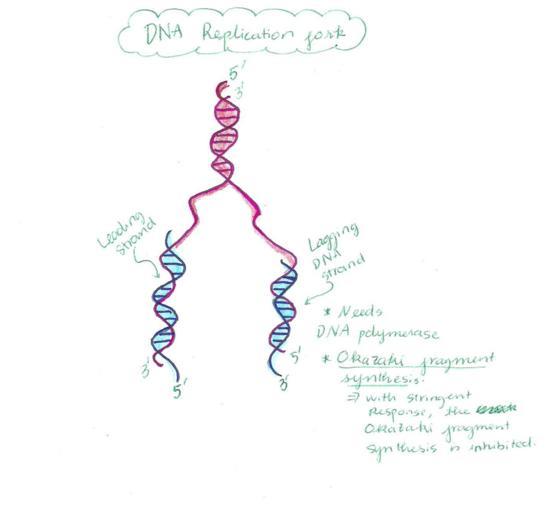 DNA Replication fork
5'
3'
Leading
strand
Lagging
DNA
strand
3'
5'
5'
3'
* Needs
DNA polymerase
* Okazaki fragment
synthesis.
⇒ with stringent
response, the
Okazaki fragment
synthesis is inhibited.